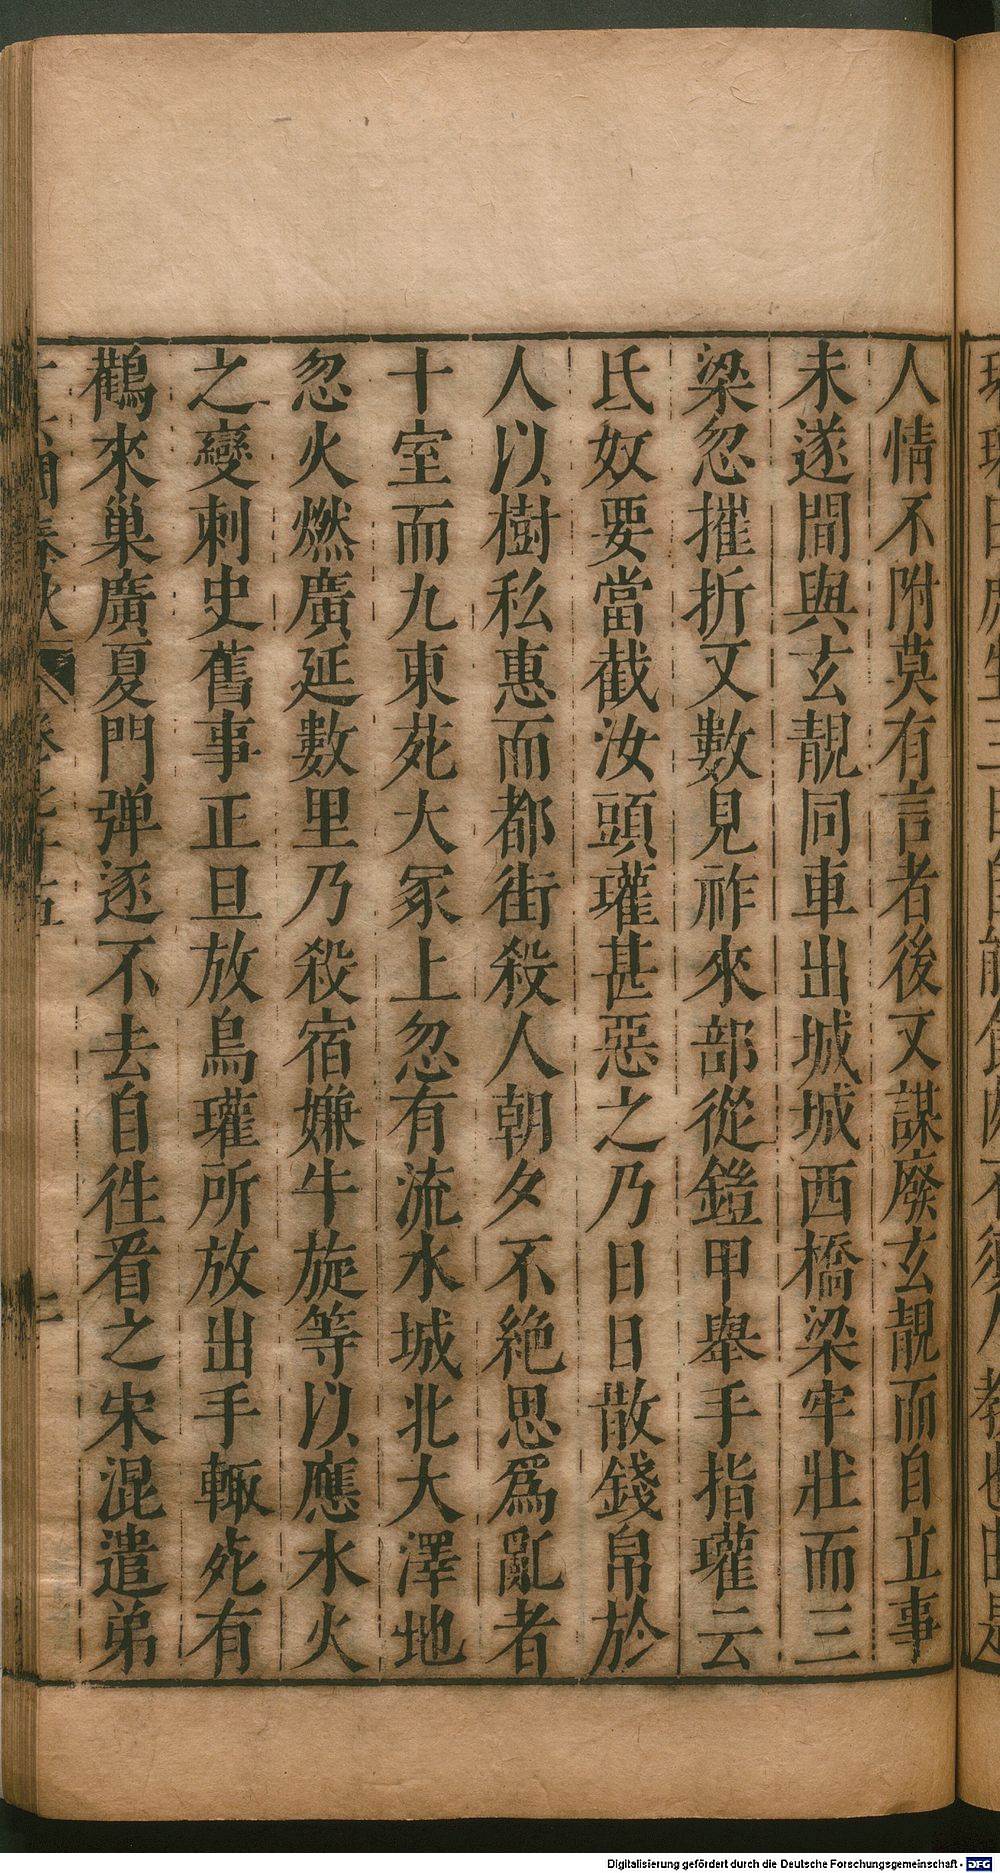 人情不附莫有言者後又謀廢玄靚而自立事
未遂間與玄靚同車出城城西橋梁牢壯而三
梁忽摧折又數見祚來部從鎧甲舉手指瓘云
氐奴要當截汝頭瓘甚惡之乃日日散錢帛於
人以樹私惠而都街殺人朝夕不絶思爲亂者
十室而九東苑大冢上忽有流水城北大澤地
忽火燃廣延數里乃殺宿嫌牛旋等以應水火
之變刺史舊事正旦放烏瓘所放出手輙死有
鸛來巢廣夏門弹逐不去自徃看之宋混遣弟
春秋
Digitalisierung gefördert durch die Deutsche Forschungsgemeinschaft - DFG